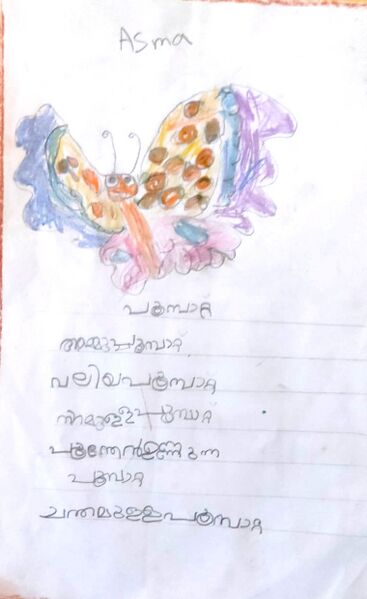 Asma
പൂമ്പാറ്റ
അമ്മുപ്പൂമ്പാറ്റ
വലിയപൂമ്പാറ്റ
നിറമുള്ളപൂമ്പാറ്റ
പൂന്തേൻഉണ്ണുന്ന
പൂമ്പാറ്റ
ചന്തമുള്ളപൂമ്പാറ്റ